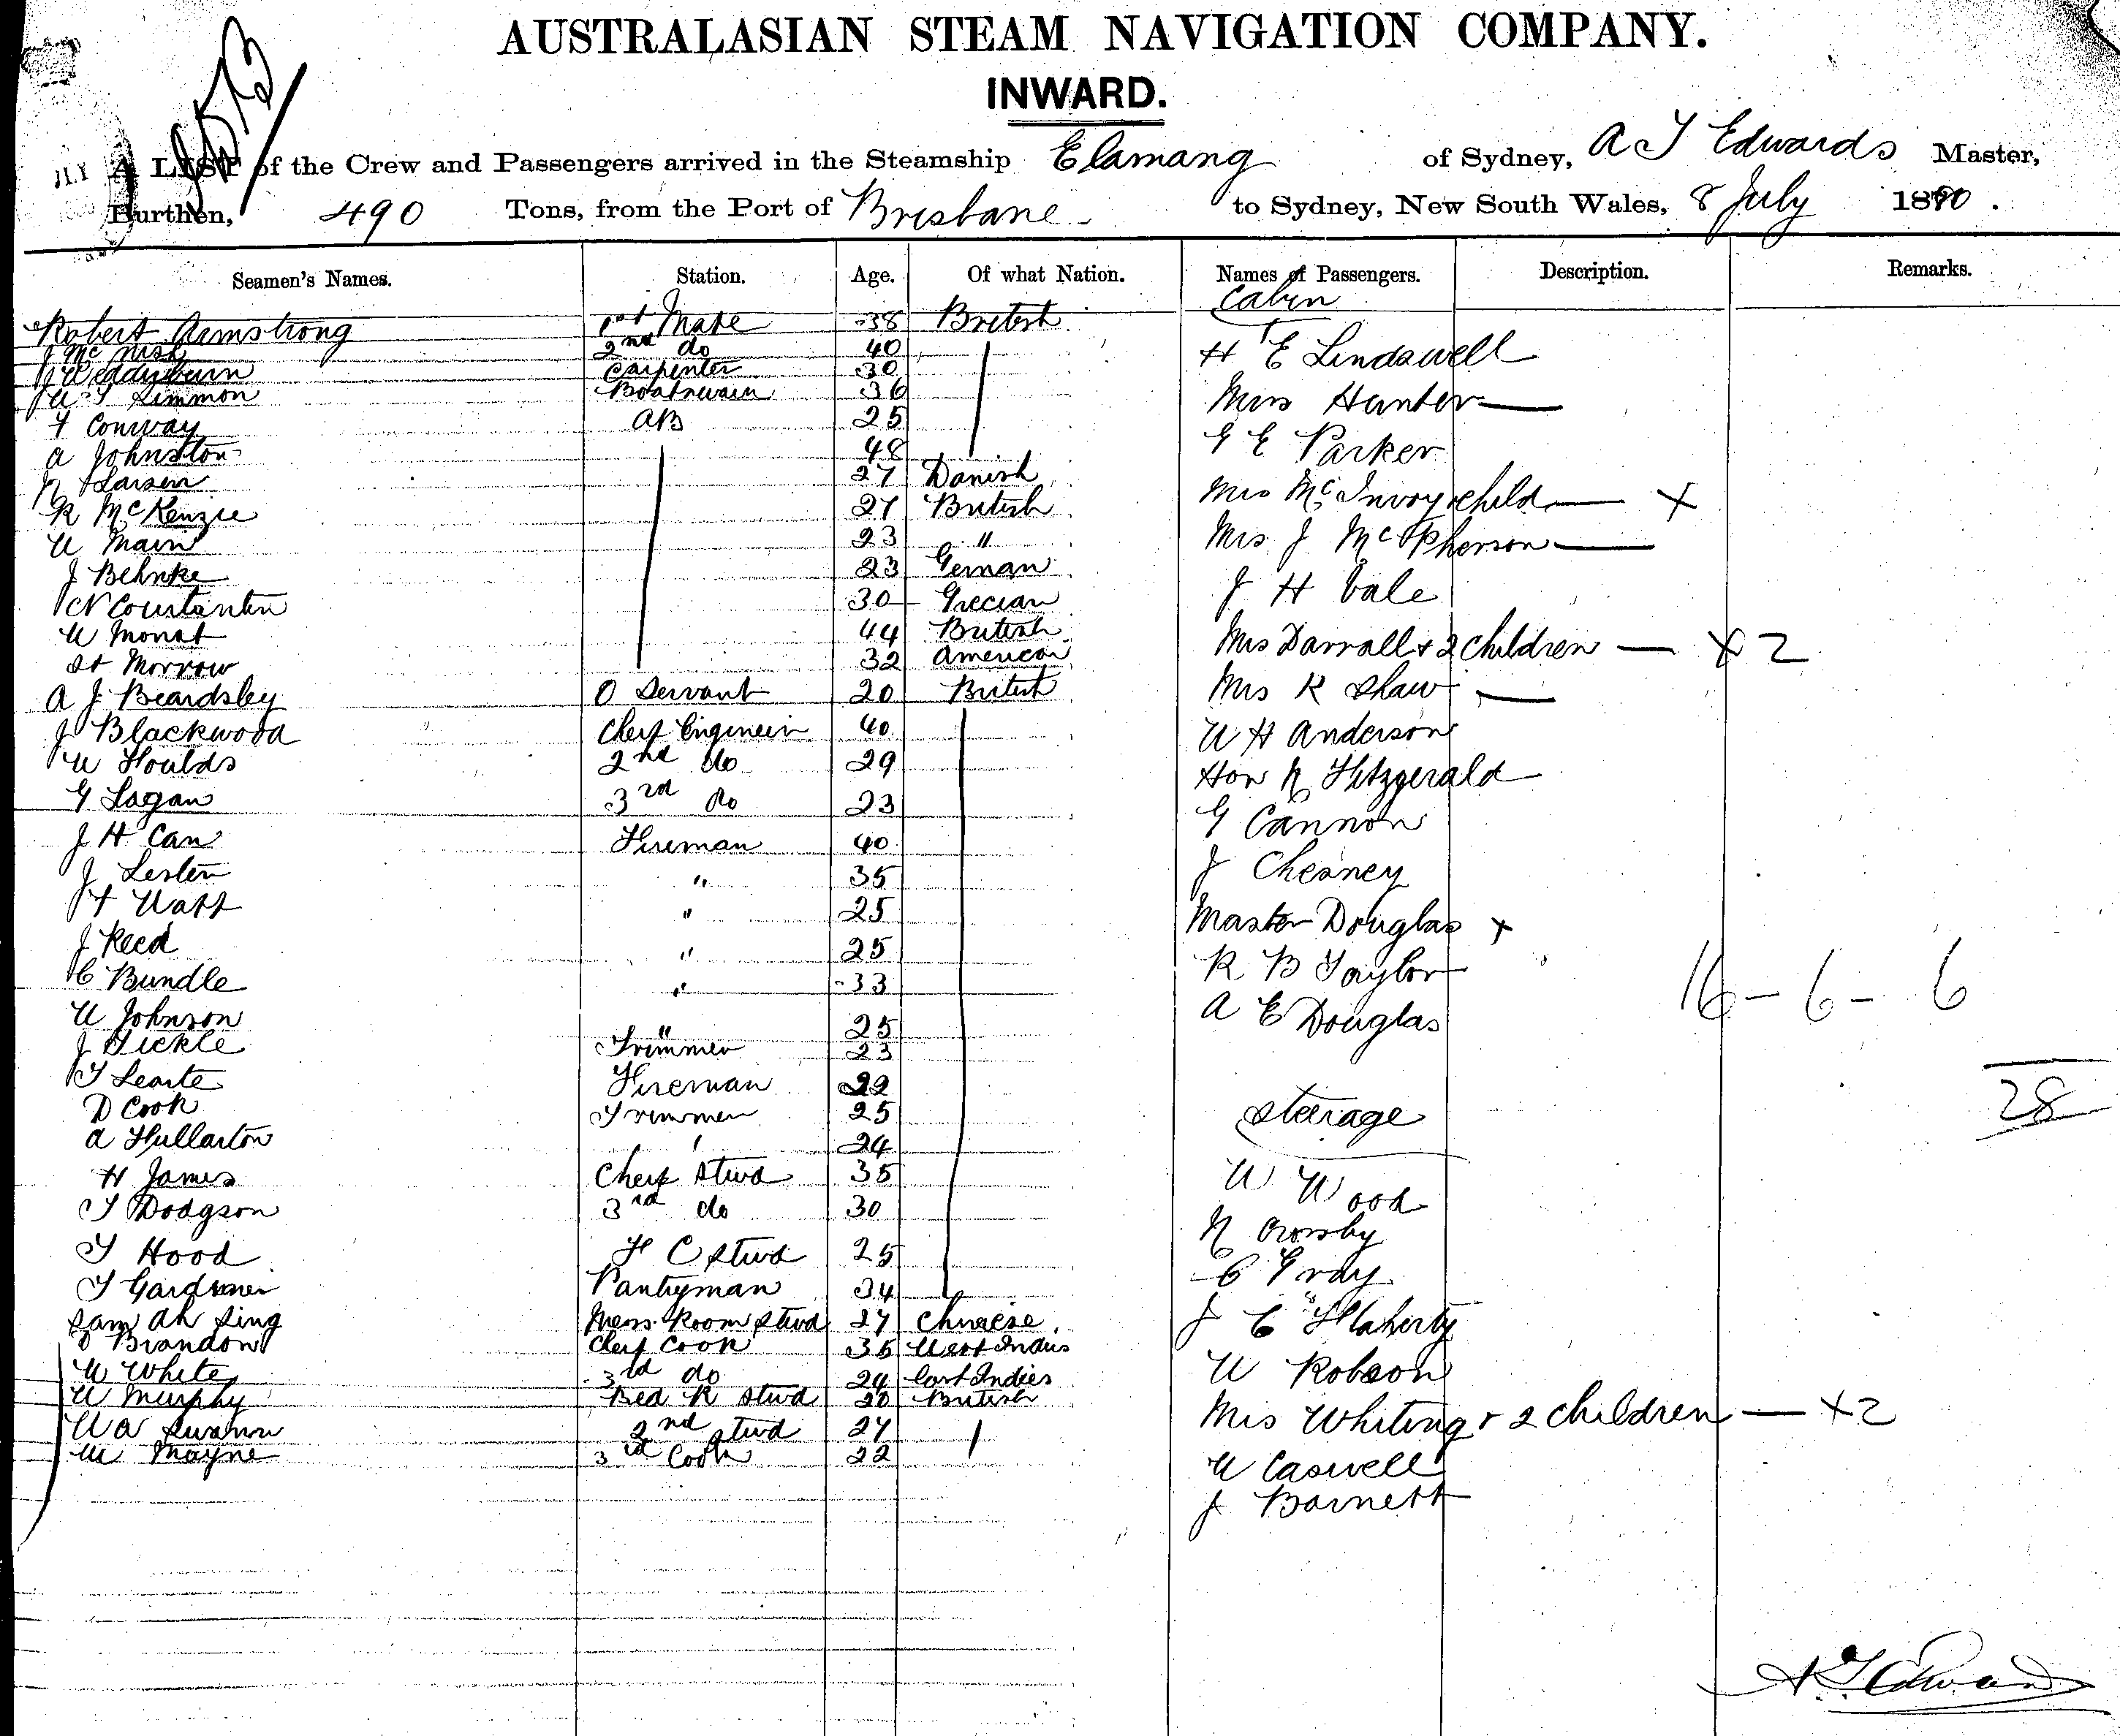 AUSTRALASIAN STEAM NAVIGATION COMPANY.
INWARD.
A LIST of the Crew and Passengers arrived in the Steamship Elamang of Sydney, A T Edwards Master,
Burthen, 490 Tons, from the Port of Brisbane to Sydney, New South Wales, 8 July 1880.
Seamen's Names. Station. Age. Of what Nation. Names of Passengers. Description. Remarks.
Cabin
Robert Armstrong 1st Mate 38 British
J McNish 2nd do 40
J Weddyburn Carpenter 30
Simmon Boatswain 36
F Conway AB 25
A Johnston 48
N Larsen 27 Danish
R McKenzie 27 British
W Main 23 "
J Behnke 23 German
N Courtanten 30 Grecian
W Monat 44 British
St Morrow 32 American
A J Beardsley O Servant 20 British
J Blackwood Chief Engineer 40
W Foulds 2nd do 29
G Logan 3rd do 23
J H Can Fireman 40
J Lester " 35
F Watt " 25
J Reed " 25
C Bundle " 33
W Johnson " 25
J Tickle Trimmer 23
T Learte Fireman 22
D Cook Trimmer 25
A Fullarton ' 24
H James Chief Stwd 35
T Dodgson 3rd do 30
T Hood F C Stwd 25
T Gardner Pantryman 34
Sam Ah Sing Mess Room Stwd 27 Chinese
Brandon Chief Cook 35 West Indies
W White 3rd do 24 East Indies
W Murphy Bed R Stwd 20 British
W A Swann 2nd Stwd 27
W Mayne 3rd Cook 22
H E Lindswell
Miss Hunter
G E Parker
Mrs McInroy child X
Mrs J McPherson
J H Vale
Mrs Darrall + 2 children X 2
Mrs R Shaw
W H Anderson
Hon N Fitzgerald
G Cannon
J Chesney
Master Douglas X
R B Taylor
A E Douglas
16 - 6 - 6
28
Steerage
W Wood
N Crosby
C Gray
J C Flaherty
W Robson
Mrs Whiting + 2 children X 2
W Caswell
J Barnett
A T Edwards